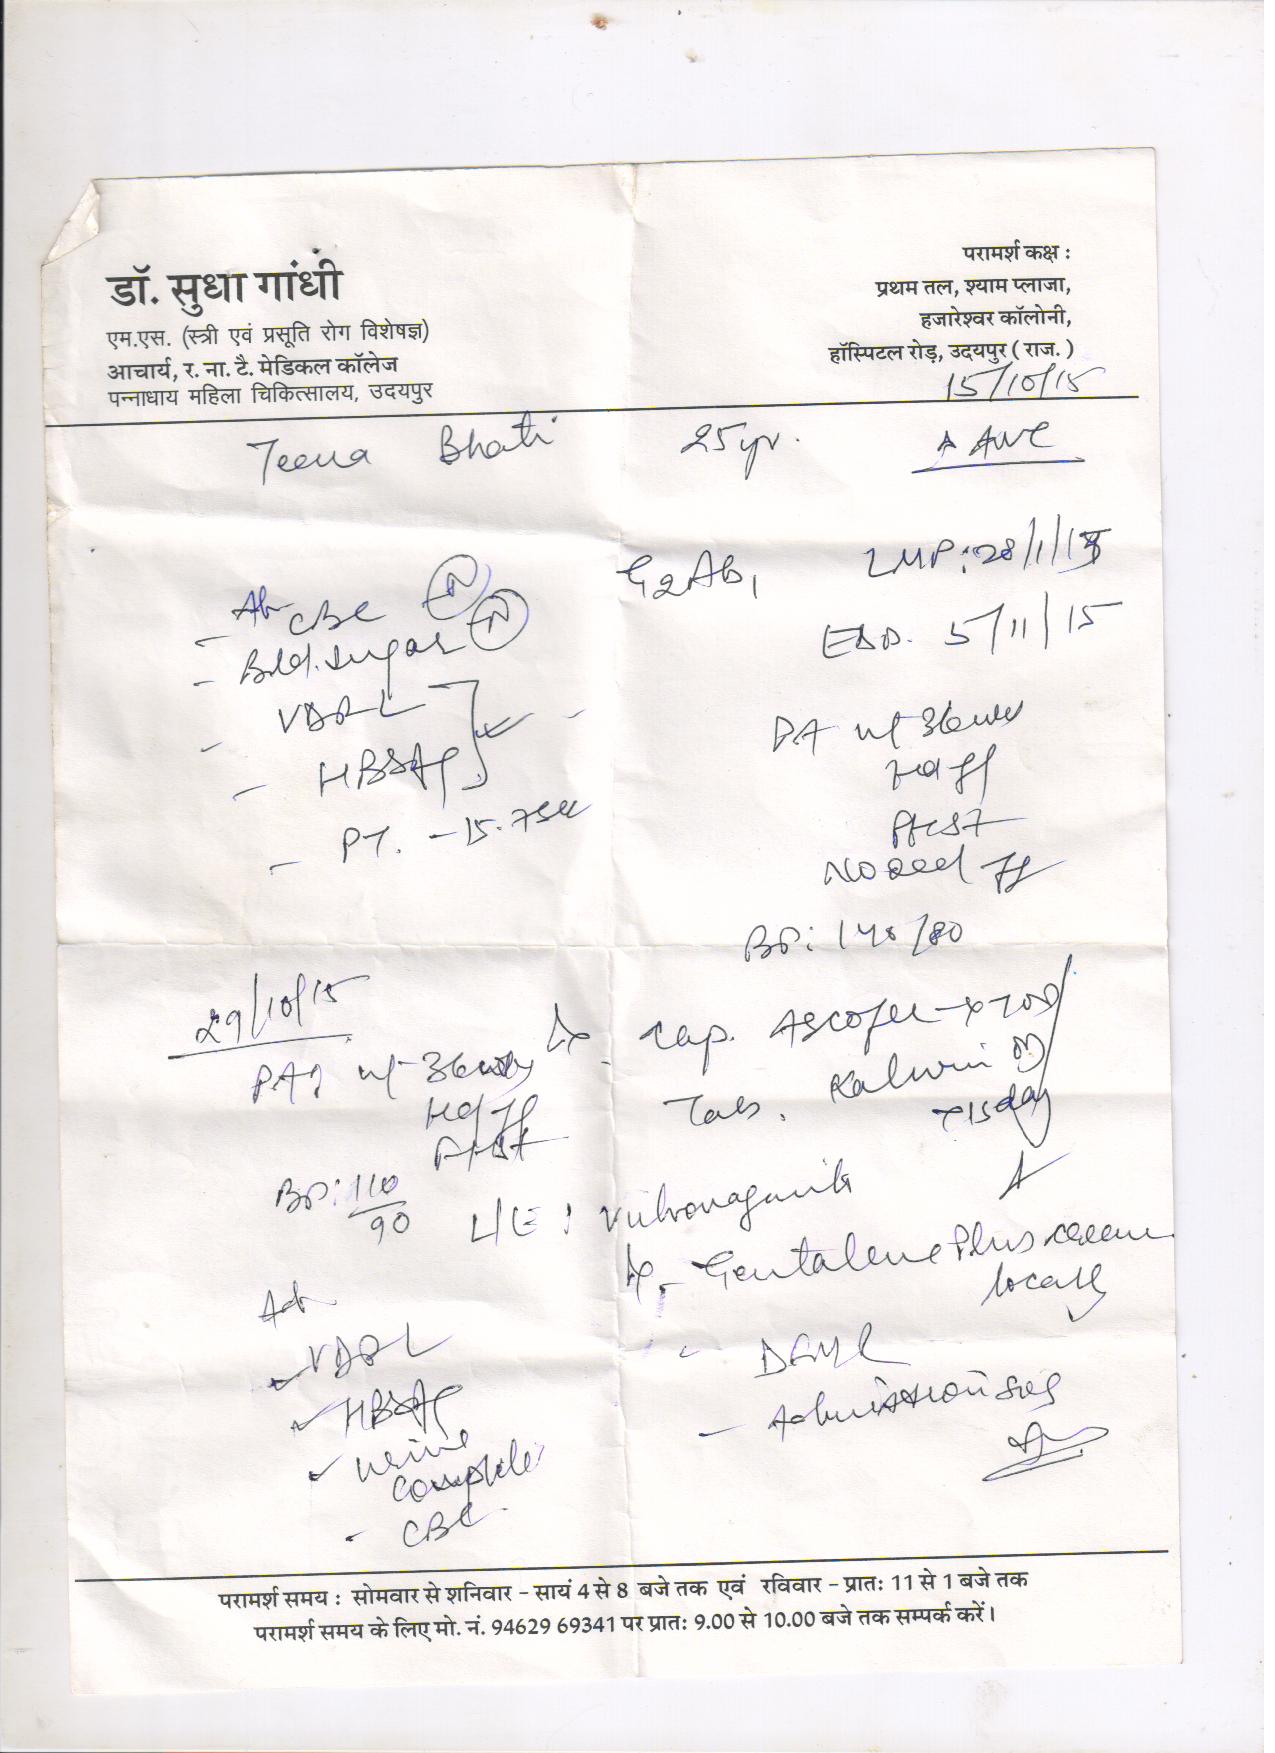 डॉ. सुधा गांधी
एम.एस. (स्त्री एवं प्रसूति रोग विशेषज्ञ)
आचार्य, र. ना. टै. मेडिकल कॉलेज
पन्नाधाय महिला चिकित्सालय, उदयपुर
परामर्श कक्ष :
प्रथम तल, श्याम प्लाजा,
हजारेश्वर कॉलोनी,
हॉस्पिटल रोड़, उदयपुर ( राज. )
15/10/15
Teena Bhati 25 yr. ANC
- CBC N
- Bld. sugar N
- VDRL
- HBSAg
- PT. - 15.7 sec
G2Ab1 LMP: 28/1/15
EDD. 5/11/15
PA 36
FHS+
No
BP: 140/80
Cap. Ascofer
Tab.
x 15 day
29/10/15
PA 36
FHS+
BP: 110/90
L/E : Vulvovaginitis
Gentalene Plus cream
locally
Adv
VDRL
HBSAg
Urine
Complete
- CBC
- DFMC
- Admission
परामर्श समय : सोमवार से शनिवार - सायं 4 से 8 बजे तक एवं रविवार - प्रातः 11 से 1 बजे तक
परामर्श समय के लिए मो. नं. 94629 69341 पर प्रातः 9.00 से 10.00 बजे तक सम्पर्क करें।